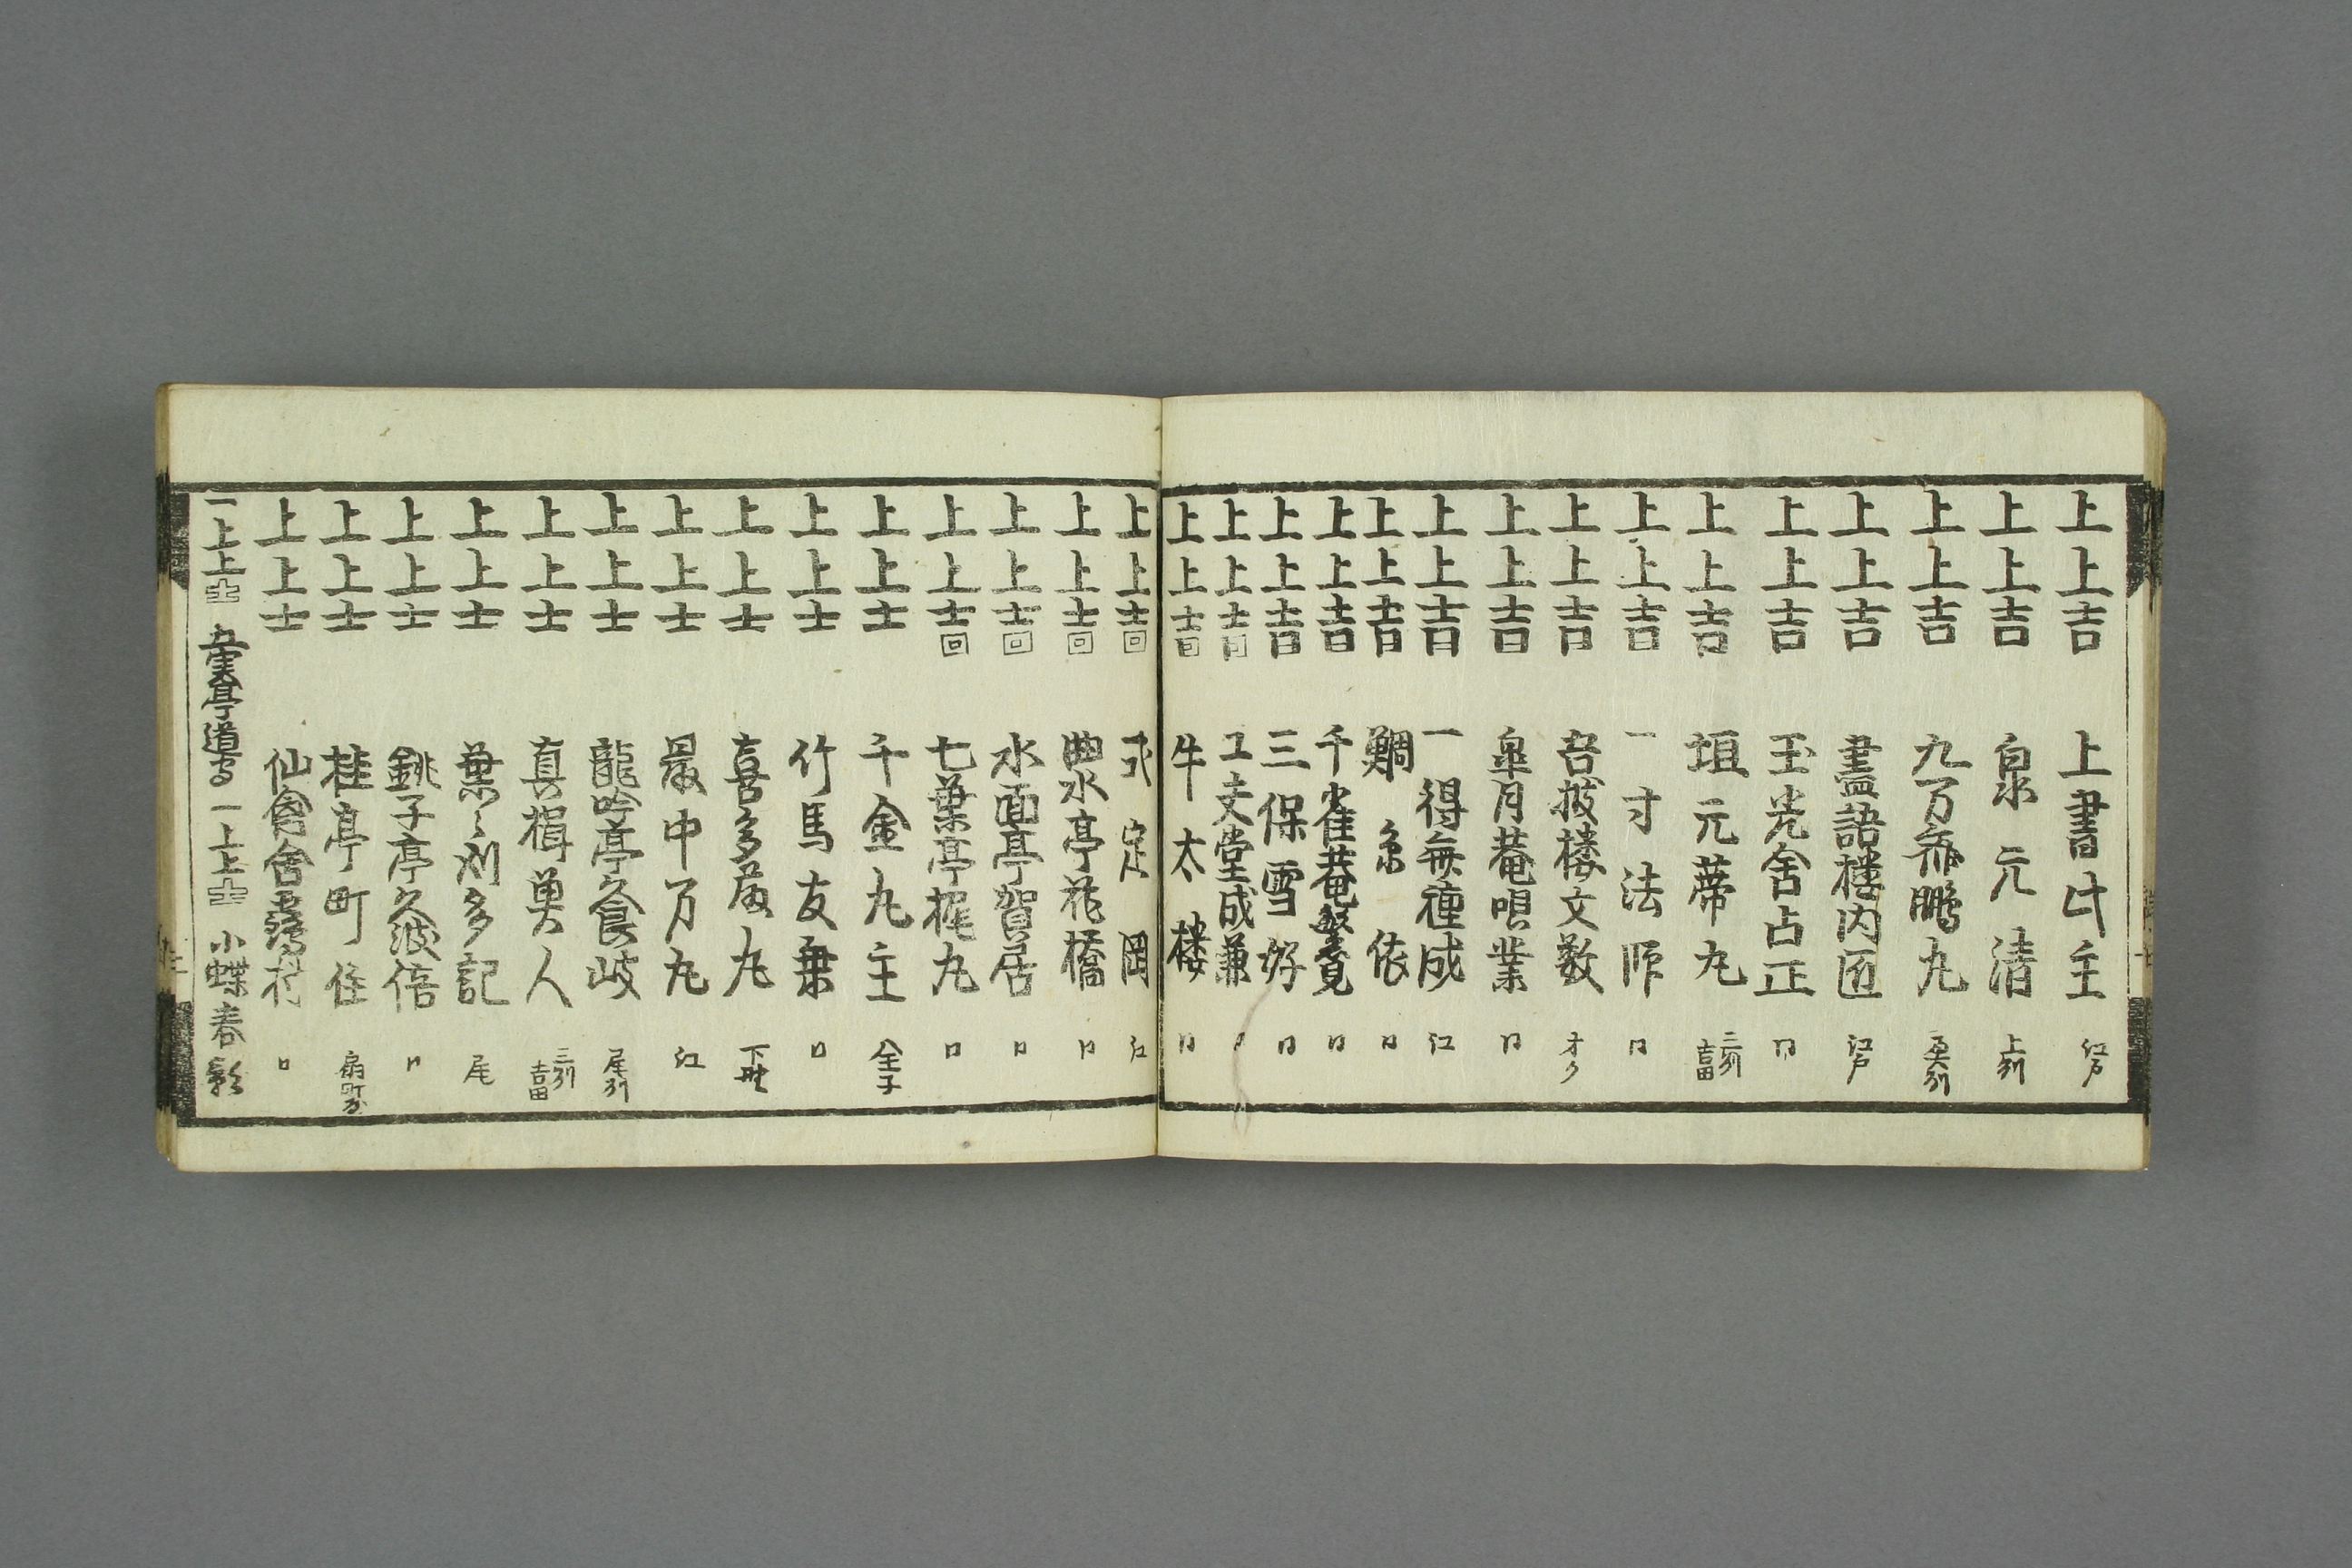 上上吉 上書氏主 江戸
上上吉 泉元清 上州
上上吉 九万斎鵬丸 奥州
上上吉 盡語楼内匠 江戸
上上吉 玉光舎占正 同
上上吉 垣元蒂丸 三州吉田
上上吉 一寸法師 同
上上吉 吾披楼文数
上上吉 皐月菴唄業 同
上上吉 一得無種成 江
上上吉 鯛糸依 同
上上吉 千雀菴繁覚 同
上上吉 三保雪好 同
上上吉 工丈堂成兼
上上吉 牛太楼 同
上上吉 定岡 江
上上吉 曲水亭花橋 同
上上吉 水面亭賀居 同
上上吉 七葉亭梶丸 同
上上士 千金丸主 金子
上上士 竹馬友乗 同
上上士 喜多成丸 下野
上上士 最中万丸 江
上上士 龍吟亭久良岐 尾州
上上士 真楫勇人 三州吉田
上上士 葉〻刈多記 尾
上上士 銚子亭久波倍 同
上上士 桂亭町住 扇町
上上士 仙舎 同
一上上士 亭道守 一上上士 小蝶春彩